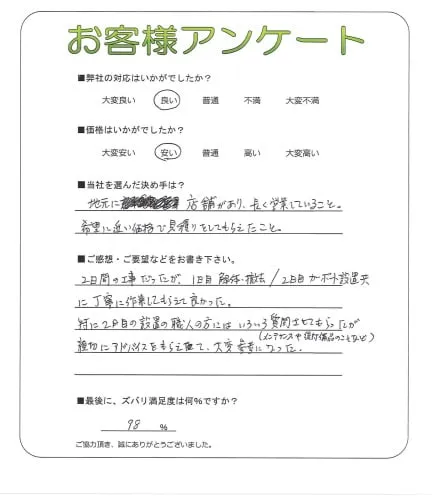 お客様アンケート
■弊社の対応はいかがでしたか?
大変良い 良い 普通 不満 大変不満
■価格はいかがでしたか?
大変安い 安い 普通 高い 大変高い
■当社を選んだ決め手は?
地元に 店舗があり、長く営業していること。
希望に近い価格で見積りをしてもらえたこと。
■ご感想・ご要望などをお書き下さい。
2日間の工事だったが、1日目 解体・撤去/2日目カーポート設置共
に丁寧に作業してもらえて良かった。
特に2日目の設置の職人の方にはいろいろ質問させてもらったが
(メンテナンスや後付備品のことなど)
親切にアドバイスをもらえて、大変参考になった。
■最後に、ズバリ満足度は何%ですか?
98 %
ご協力頂き、誠にありがとうございました。